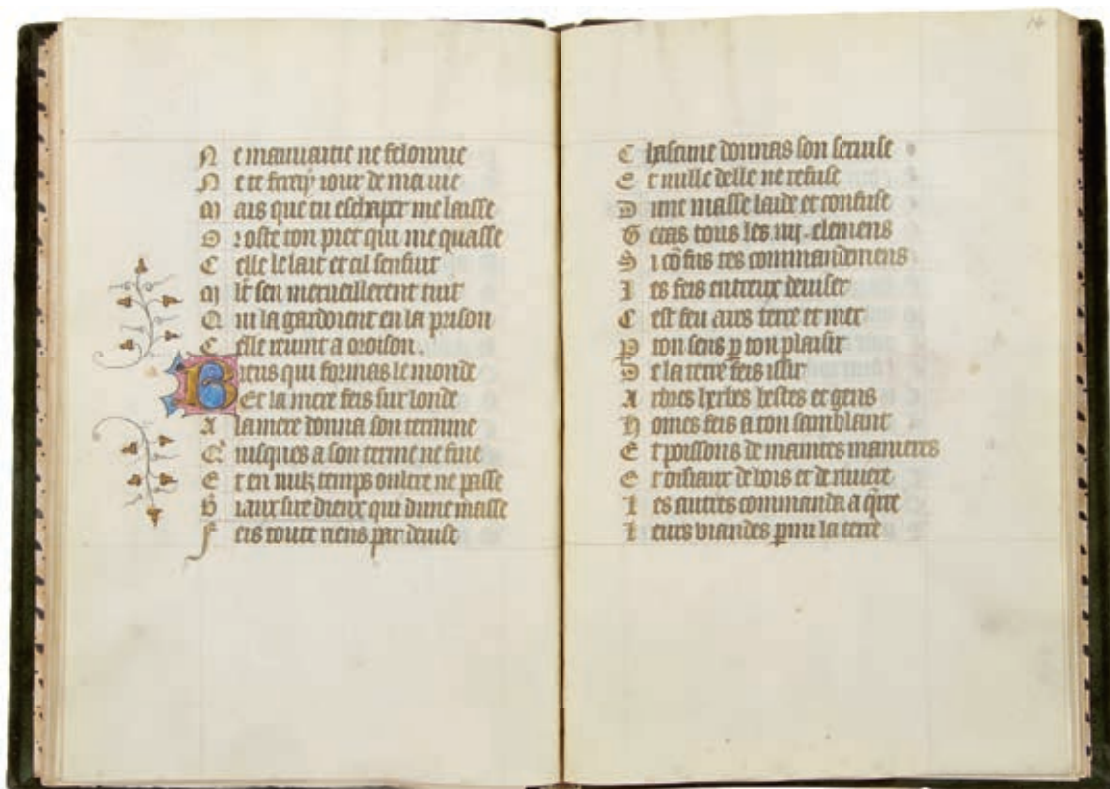 Ne mauuaitie ne felonnie
Ne te feray iour de ma uie
Mais que tu eschaper me laisse
Oroste ton piet qui me quasse
Celle le lait et cil senfuit
Mlt sen merueillerent tuit
Qui la gardoient en la prison
Celle reuint a oroison.
Dieus qui formas le monde
Et la mere feis sur londe
A la mere donna son termine
Qui iusques a son terme ne fine
Et en nulz temps oultre ne passe
Biaux sire dieux qui dune masse
Feis toute riens par deuise
14
Chascune donnas son seruise
Et nulle delle ne refuse
Dune masse laide et confuse
Gettas tous les iiij. elemens
Si cōfus tes commandemens
Les feis entreux deuiser
Cest feu airs terre et mer
P ton sens p ton plaisir
De la terre feis issir
Arbres herbes bestes et gens
Homes feis a ton samblant
Et poissons de maintes manieres
Et oisiaux de bois et de riuiere
Les autres commanda a q̄rre
Leurs uiandes pmi la terre